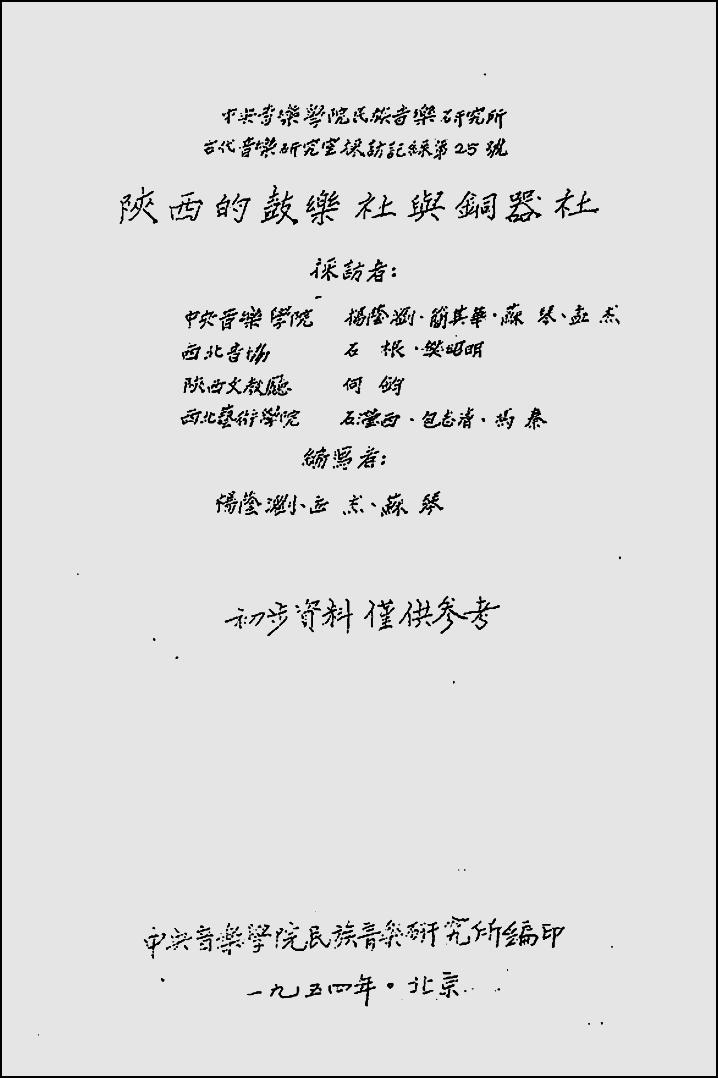 中央音樂學院民族音樂研究所
古代音樂研究室採訪記錄第25號
陝西的鼓樂社與銅器社
採訪者：
中央音樂學院 楊蔭瀏·簡其華·蘇 琴、孟 杰
西北音協 石 根·樊昭明
陝西文教廳 何 鈞
西北藝術學院 石瀅西·包志清·馬 秦
編寫者：
楊蔭瀏、孟 杰、蘇 琴
初步資料僅供參考
中央音樂學院民族音樂研究所編印
一九五四年·北京